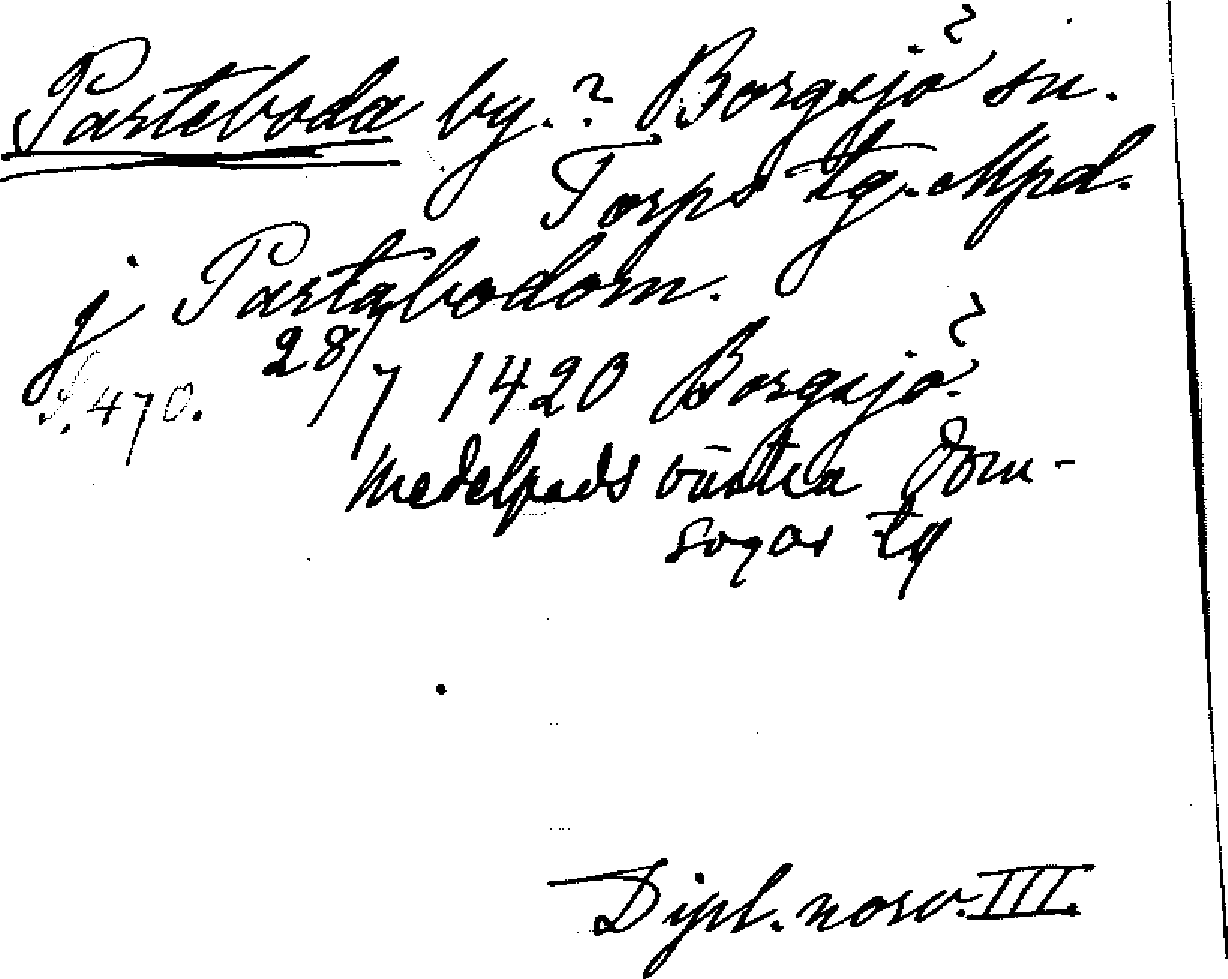 Parteboda by.? Borgsjö? sn.
Torps tg. Mpd.
j Partabodom.
S. 470. 28/7 1420 Borgsjö?
Medelpads västra dom-
sagas tg
Dipl. norv. III.